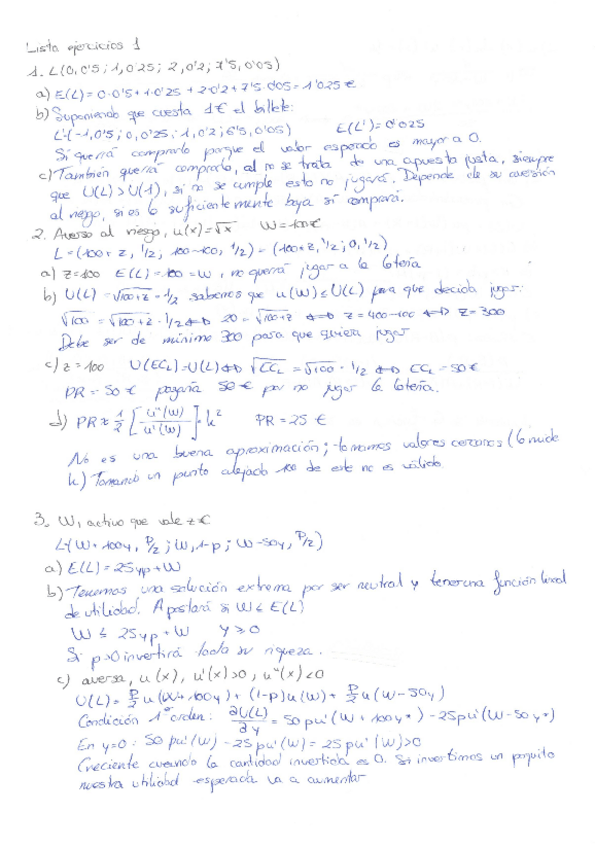 Lista ejercicios 1
1. L(0, 0'5; 1, 0'25; 2, 0'2; 7'5, 0'05)
a) E(L) = 0·0'5 + 1·0'25 + 2·0'2 + 7'5·0'05 = 1'025 €
b) Suponiendo que cuesta 1€ el billete:
L'(-1, 0'5; 0, 0'25; 1, 0'2; 6'5, 0'05) E(L') = 0'025
Sí querrá comprarlo porque el valor esperado es mayor a 0.
c) También querrá comprarlo, al no se trata de una apuesta justa, siempre
que U(L) > U(1), si no se cumple esto no jugará. Depende de su aversión
al riesgo, si es lo suficientemente baja sí comprará.
2. Averso al riesgo, u(x) = √x W = 100€
L = (100+z, 1/2; 100-100, 1/2) = (100+z, 1/2; 0, 1/2)
a) z=100 E(L) = 100 = W, no querrá jugar a la lotería
b) U(L) = √100+z · 1/2 sabemos que u(W) ≤ U(L) para que decida jugar:
√100 = √100+z · 1/2 ⇔ 20 = √100+z ⇔ z = 400-100 ⇔ z = 300
Debe ser de mínimo 300 para que quiera jugar
c) z = 100 U(EC_L) = U(L) ⇔ √CC_L = √100 · 1/2 ⇔ CC_L = 50€
PR = 50€ pagaría 50€ por no jugar la lotería.
d) PR ≈ 1/2 [u''(W)/u'(W)] · k² PR = 25 €
No es una buena aproximación; tomamos valores cercanos (lo mide
k.) Tomando un punto alejado 100 de este no es válido
3. W, activo que vale z€
L(W+100y, P/2; W, 1-p; W-50y, P/2)
a) E(L) = 25yp + W
b) Tenemos una solución extrema por ser neutral y tener una función lineal
de utilidad. Apostará si W ≤ E(L)
W ≤ 25yp + W y ≥ 0
Si p>0 invertirá toda su riqueza.
c) aversa, u(x), u'(x)>0, u''(x)<0
U(L) = P/2 u(W+100y) + (1-p)u(W) + P/2 u(W-50y)
Condición 1º orden: ∂U(L)/∂y = 50pu'(W+100y*) - 25pu'(W-50y*)
En y=0: 50pu'(W) - 25pu'(W) = 25pu'(W)>0
Creciente cuando la cantidad invertida es 0. Si invertimos un poquito
nuestra utilidad esperada va a aumentar